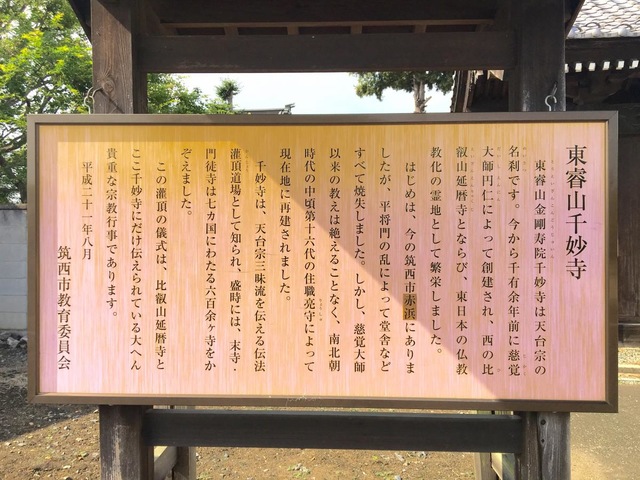 東睿山千妙寺
東睿山金剛寿院千妙寺は天台宗の
名刹です。今から千有余年前に慈覚
大師円仁によって創建され、西の比
叡山延暦寺とならび、東日本の仏教
教化の霊地として繁栄しました。
はじめは、今の筑西市赤浜にありま
したが、平将門の乱によって堂舎など
すべて焼失しました。しかし、慈覚大師
以来の教えは絶えることなく、南北朝
時代の中頃第十六代の住職亮守によって
現在地に再建されました。
千妙寺は、天台宗三昧流を伝える伝法
灌頂道場として知られ、盛時には、末寺・
門徒寺は七カ国にわたる六百余ヶ寺をか
ぞえました。
この灌頂の儀式は、比叡山延暦寺と
ここ千妙寺にだけ伝えられている大へん
貴重な宗教行事であります。
平成二十一年八月
筑西市教育委員会